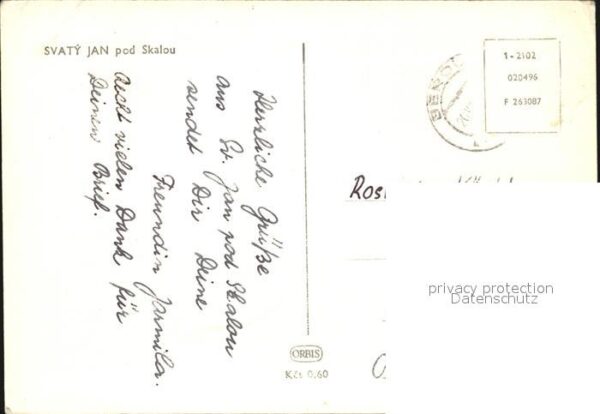 SVATÝ JAN pod Skalou
Herzliche Grüße
aus Sv. Jan pod Skalou
sendet Dir Deine
Freundin Jarmila.
Recht vielen Dank für
Deinen Brief.
1-2102
020496
F 263087
privacy protection
Datenschutz
ORBIS
Kčs 0,60